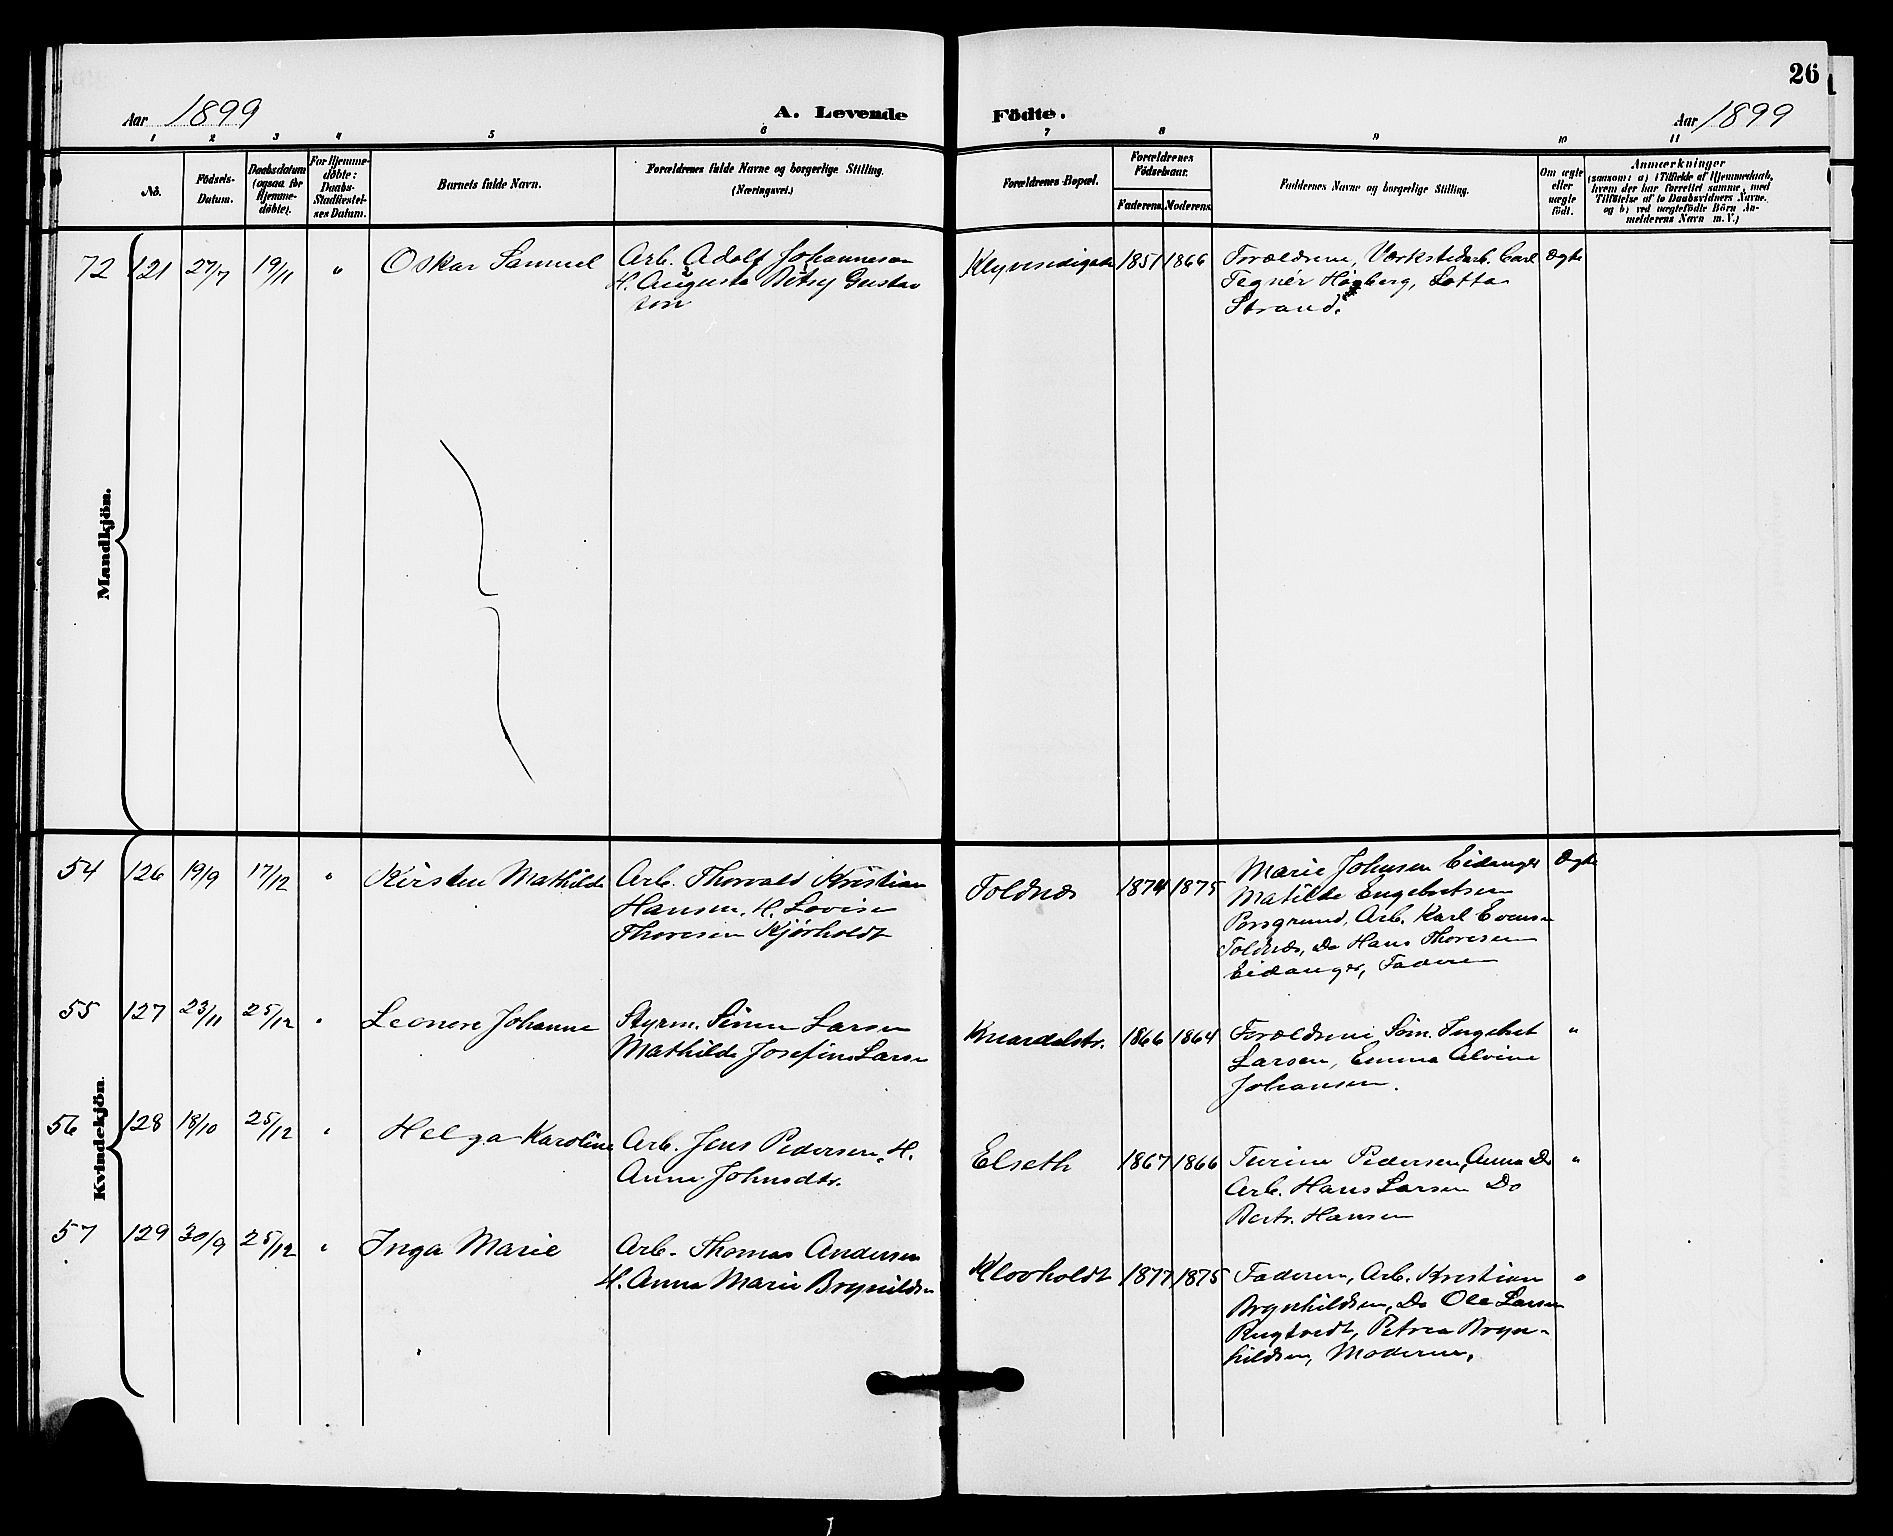 26
Aar 1899
A. Levende
Födte.
Aar 1899
1 2 3 4 5 6 7 8 9 10 11
No.
Födsels-
Datum.
Daabsdatum
(ogsaa for
Hjemme-
döbte).
For Hjemme-
döbte:
Daabs-
Stadfæstel-
ses Datum.
Barnets fulde Navn.
Forældrenes fulde Navne og borgerlige Stilling.
(Næringsvei.)
Forældrenes Bopæl.
Forældrenes
Födselsaar.
Faderens.
Moderens.
Faddernes Navne og borgerlige Stilling.
Om ægte
eller
uægte
födt.
Anmærkninger
(saasom: a) i Tilfælde af Hjemmedaab,
hvem der har forrettet samme, med
Tilföielse af to Daabsvidners Navne.
og b) ved uægtefödte Börn An-
melderens Navn m. V.)
Mandkjön.
72 121 27/7 19/11 " Oskar Samuel
Arb. Adolf Johanneson
H. Augusta Betsy Gustav
son
1851 1866
Forældrene, Værkstedarb. Carl
Tegnér Högberg, Lotta
Strand.
Ægte
Kvindekjön.
54 126 19/9 17/12 " Kirsten Mathilde
Arb. Thorvald Kristian
Hansen, H. Lovise
Thoresen Kjörholdt
Toldnæs 1874 1875
Marie Johnsen Eidanger
Matilde Engebretsen
Porsgrund, Arb. Karl Evensen
Toldnæs, Do Hans Thoresen
Eidanger, Faderen
Ægte
55 127 23/11 25/12 " Leonore Johanne
Styrm. Simen Larsen
Mathilde Josefine Larsen
Knardalstr. 1866 1864
Forældrene, Söm. Ingebret
Larsen, Emma Alvine
Johansen.
"
56 128 18/10 25/12 " Helga Karoline
Arb. Jens Pedersen, H.
Anne Johnsdtr.
Elseth 1867 1866
Pedersen, Anna Do
Arb. Hans Larsen Do
Hansen
"
57 129 30/9 25/12 " Inga Marie
Arb. Thomas Andersen
H. Anna Marie Brynildsen
Klovholdt 1877 1875
Faderen, Arb. Kristian
Brynhildsen, Do Ole Larsen
Rugtvedt, Petrea Bryn-
hildsen, Moderen.
"